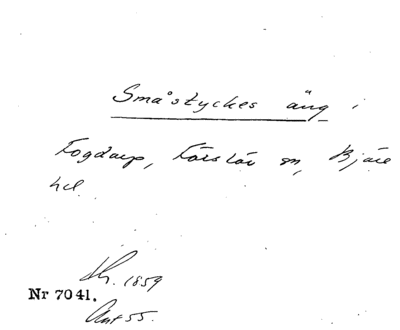 Småstyckes äng i
Fogdarp, Förslöv sn, Bjäre
hd.
Sk. 1859
Nr 7041.
Ant 55.